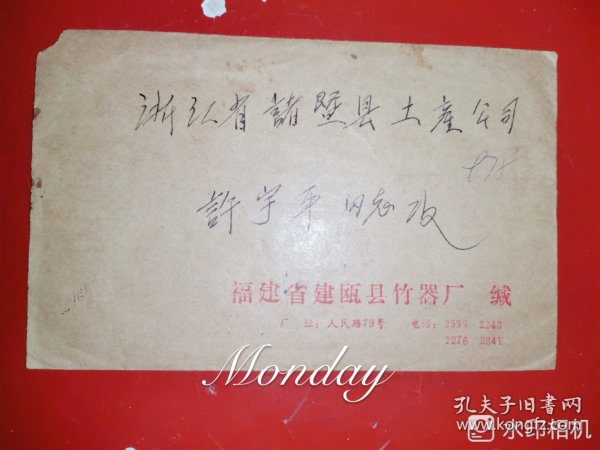 浙江省諸暨县土産公司
許宇平同志收
福建省建瓯县竹器厂 缄
厂 址：人民路79号 电话：2535 2343
2276 2341
Monday
孔夫子旧书网
www.kongfz.com
水印相机